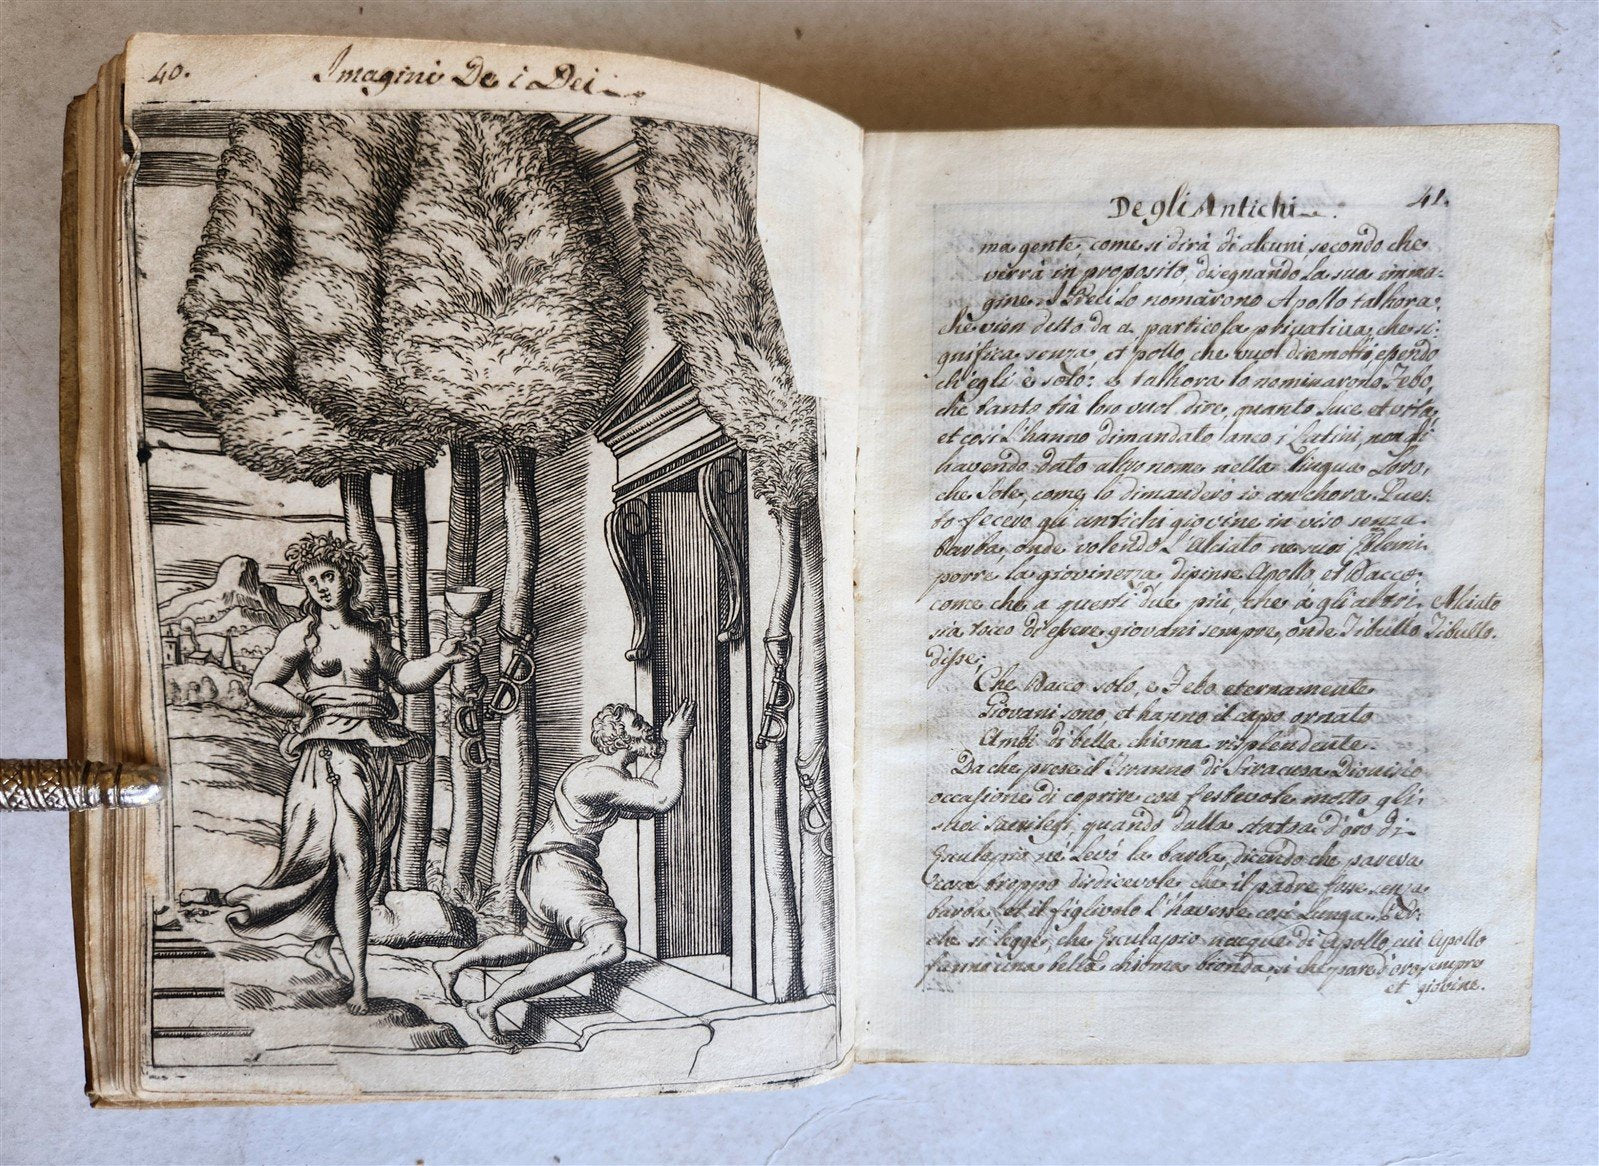 40.
Imagini De i Dei
De gli Antichi
41.
ma gente, come si dirà di alcuni, secondo che
verrà in proposito, disegnando la sua imma-
gine. I Greci lo nomarono Apollo talhora,
che vien detto da a particola privativa, che si-
gnifica senza, et pollo, che vuol dir molti, essendo
ch'egli è solo: e talhora lo nominarono Febo,
che tanto frà loro vuol dire, quanto luce et vita,
et così l'hanno dimandato anco i Latini, non gli
havendo dato altro nome nella lingua loro,
che Sole, come lo dimanderò io anchora. Ques-
to fecero gli antichi giovine in viso senza
barba, onde volendo l'Alciato ne suoi Emblemi
porre la giovinezza dipinse Apollo, et Bacco,
come che a questi due più, che à gli altri
Alciato
sia toco di essere giovani sempre, onde Tibullo
Tibullo.
disse;
Che Bacco solo, e Febo eternamente
Giovani sono, et hanno il capo ornato
Ambi di bella chioma risplendente.
Da che prese il Tiranno di Siracusa Dionisio
occasione di coprire con festevole motto gli
suoi sacrilegi, quando dalla statoa d'oro di
Esculapio ne levò la barba, dicendo che pareva
cosa troppo disdicevole, che il padre fosse senza
barba, et il figlivolo l'havesse così lunga. Per-
che si legge, che Esculapio nacque di Apollo cui
Apollo
fanno una bella chioma bionda, si che pare d'oro,
sempre
et giovine.